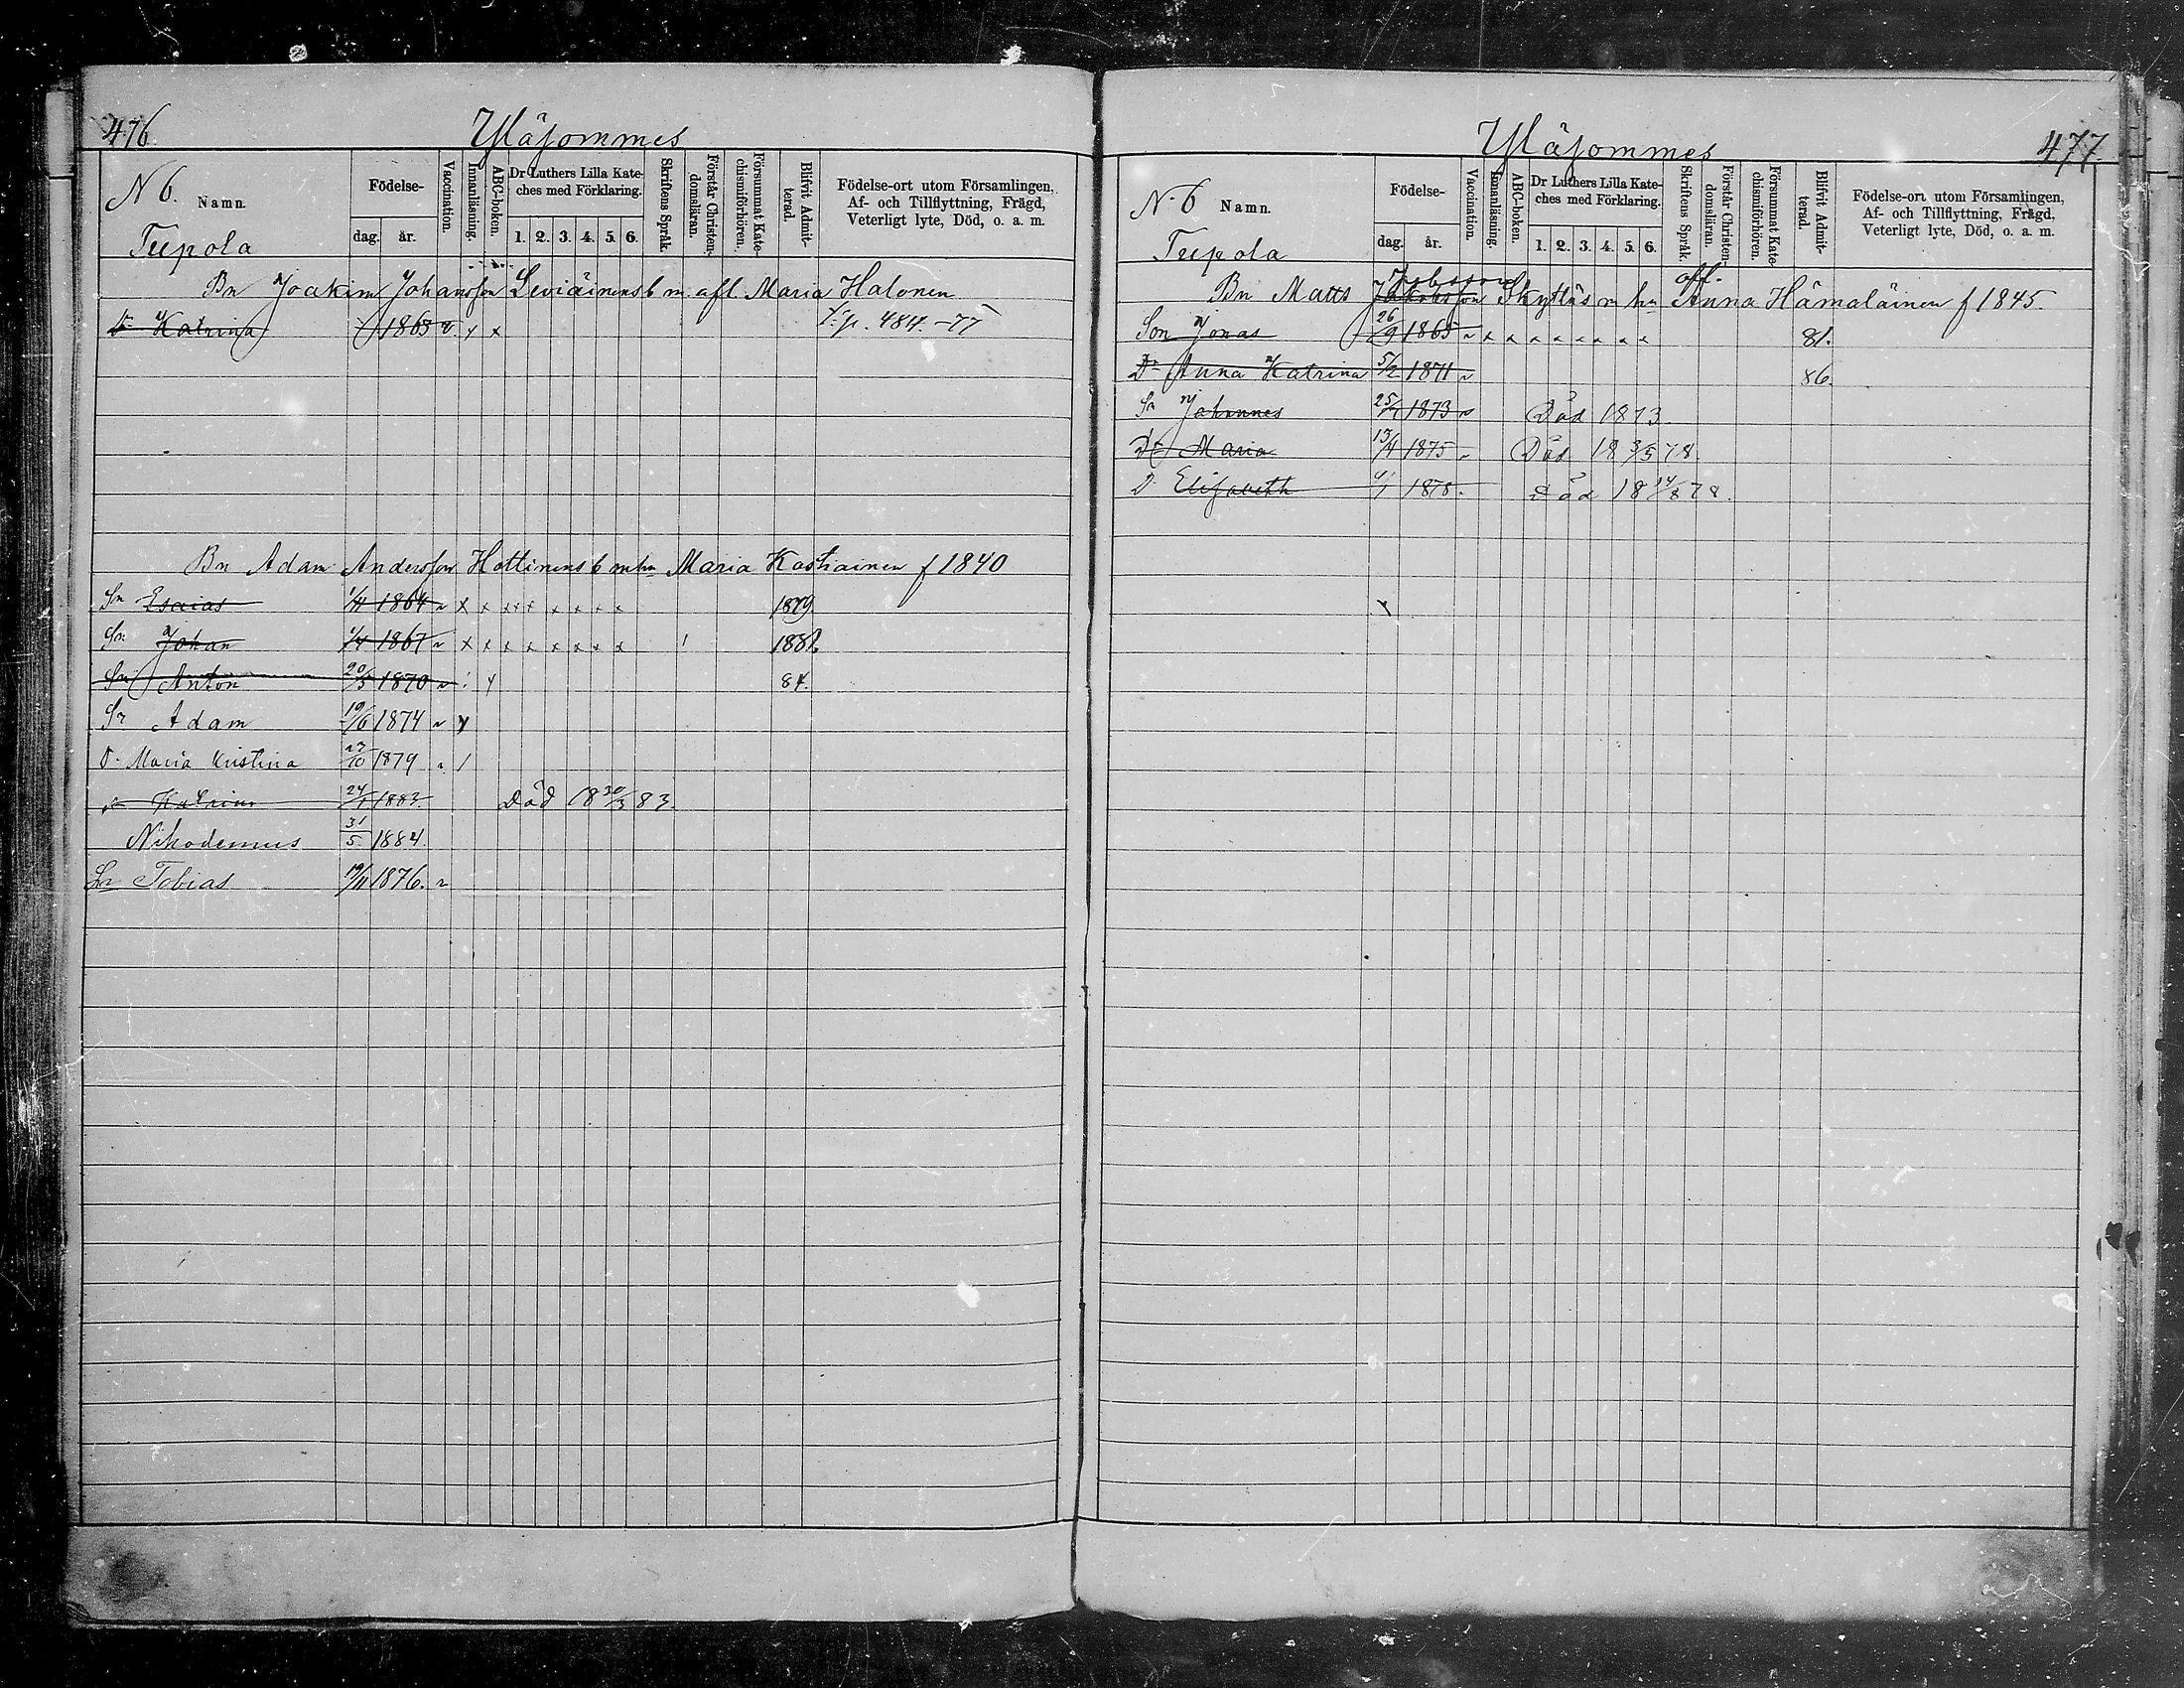 476.
Yläsommes
N 6.
Namn.
Födelse-
dag.
år.
Vaccination.
Innanläsning.
ABC-boken.
Dr Luthers Lilla Kate-
ches med Förklaring.
1. 2. 3. 4. 5. 6.
Skriftens Språk.
Förstår Christen-
domsläran.
Försummat Kate-
chismiförhören.
Blifvit Admit-
terad.
Födelse-ort utom Församlingen,
Af- och Tillflyttning, Frägd,
Veterligt lyte, Död, o. a. m.
Teepola
Bn Joakim Johansson Leviäinens b m afl. Maria Halonen
Dr Katrina 1863 v. x x p. 484. -77
Bn Adam Andersson Hottinens b m hu Maria Kastiainen f 1840
Sn Esaias 1864 v x x x x x x x x x 1879
Sn Johan 1/4 1867 v x x x x x x x x 1882
Sn Anton 20/5 1870 v 84.
Sn Adam 19/6 1874 v
D. Maria Kristina 23/10 1879
Katrina 24/1 1883. Död 18 30/3 83.
Nikodemus 31/5 1884.
Sn Tobias 19/11 1876. v
Yläsommes
477.
N 6
Namn.
Födelse-
dag.
år.
Vaccination.
Innanläsning.
ABC-boken.
Dr Luthers Lilla Kate-
ches med Förklaring.
1. 2. 3. 4. 5. 6.
Skriftens Språk.
Förstår Christen-
domsläran.
Försummat Kate-
chismiförhören.
Blifvit Admit-
terad.
Födelse-ort utom Församlingen,
Af- och Tillflyttning, Frägd,
Veterligt lyte, Död, o. a. m.
Teepola
Jobsson afl.
Bn Matts Jakobsson Skyttäs m hu Anna Hämäläinen f 1845.
Son Jonas 26/9 1865 v x x x x x x x x 81.
Dr Anna Katrina 5/2 1871 v 86.
Sn Johannes 1873 v Död 1873.
Dr Maria 13/4 1875 v Död 18 3/5 78.
D Elisabeth 1878. Död 18 14/8 78.